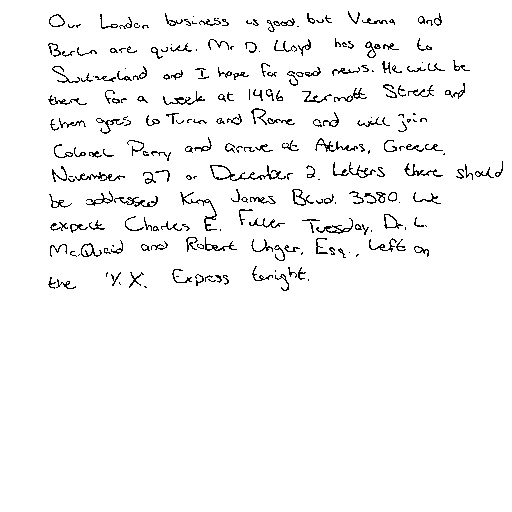 Our London business is good, but Vienna and
Berlin are quiet. Mr. D. Lloyd has gone to
Switzerland and I hope for good news. He will be
there for a week at 1496 Zermott Street and
then goes to Turin and Rome and will join
Colonel Parry and arrive at Athens, Greece,
November 27 or December 2. Letters there should
be addressed King James Blvd. 3580. We
expect Charles E. Fuller Tuesday. Dr. L.
McQuaid and Robert Unger, Esq., left on
the 'Y.X. Express tonight.